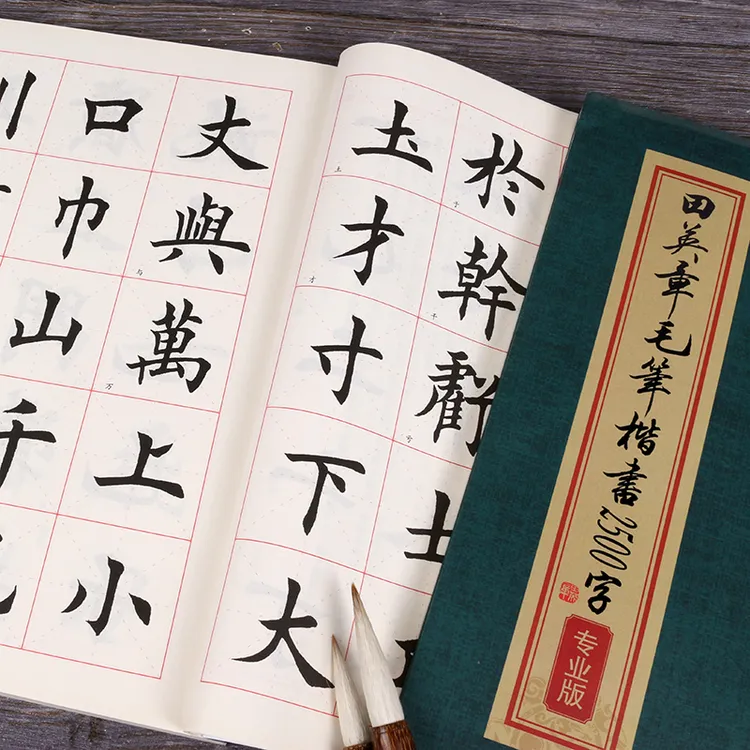 於于幹干虧亏士
圡土才才寸下大
丈與与萬万上小
口巾山千
川
田英章毛筆楷書2500字
专业版